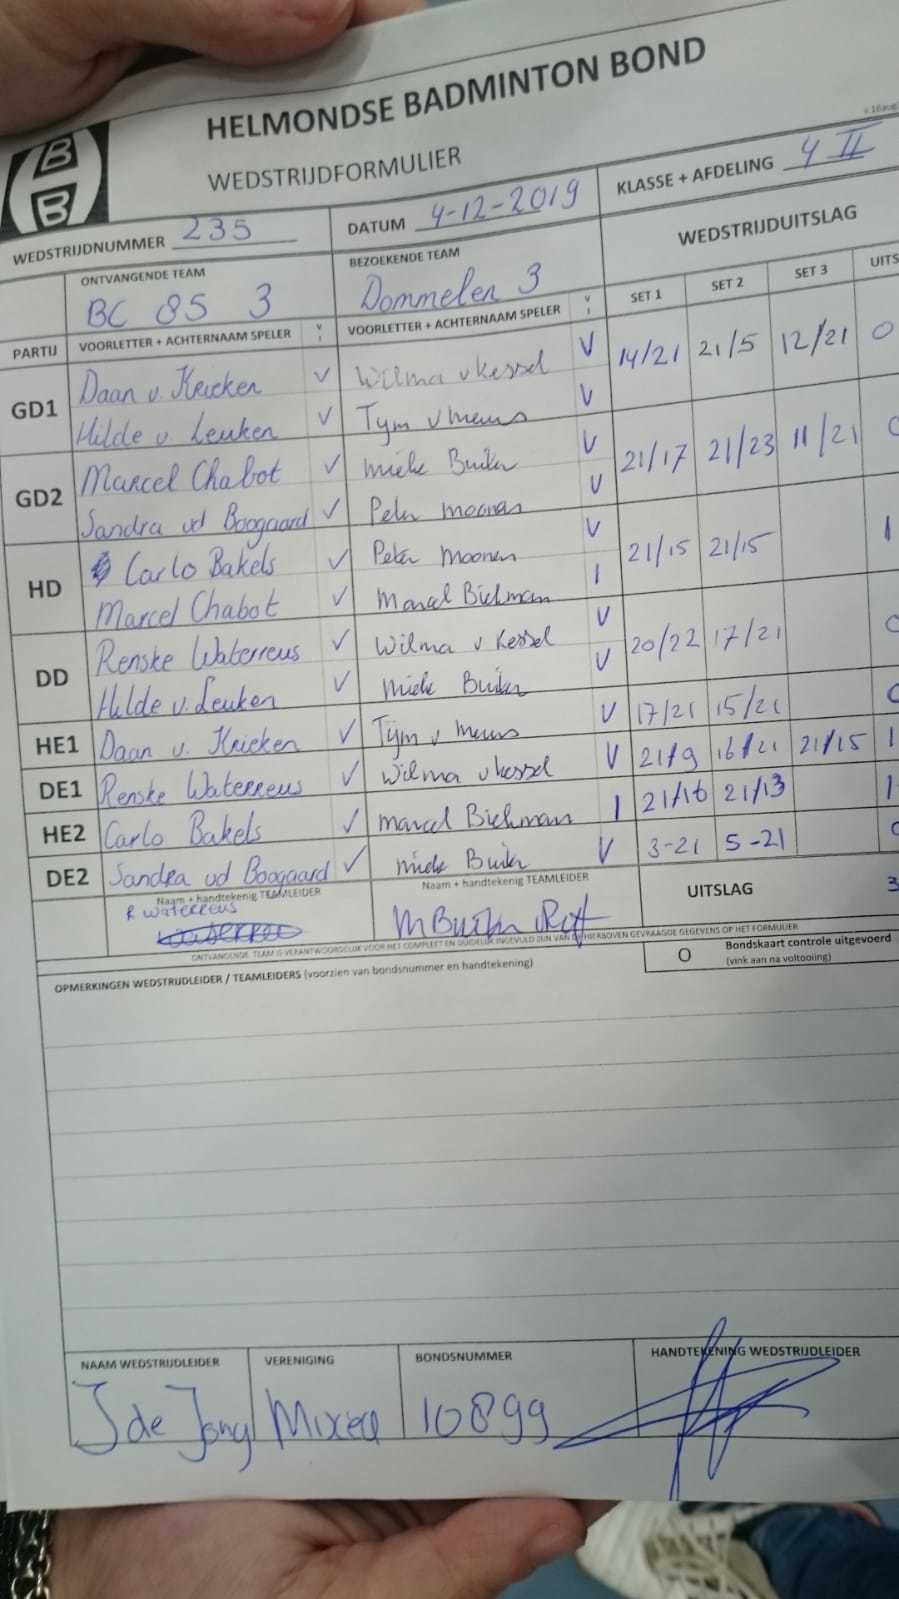 HELMONDSE BADMINTON BOND
B
B
WEDSTRIJDFORMULIER
WEDSTRIJDNUMMER 235
DATUM 4-12-2019
KLASSE + AFDELING 4 II
ONTVANGENDE TEAM
BC 85 3
BEZOEKENDE TEAM
Dommelen 3
WEDSTRIJDUITSLAG
PARTIJ VOORLETTER + ACHTERNAAM SPELER V VOORLETTER + ACHTERNAAM SPELER V SET 1 SET 2 SET 3 UITS
GD1 Daan v. Kricken V Wilma v Kessel V 14/21 21/5 12/21 0
Hilde v. Leuken V Tym v Meurs V
GD2 Marcel Chabot V Mieke Buiter V 21/17 21/23 11/21 0
Sandra vd Boogaard V Peter Moonen V
HD Carlo Bakels V Peter Moonen V 21/15 21/15 1
Marcel Chabot V Marcel Bichman I
DD Renske Waterreus V Wilma v Kessel V 20/22 17/21 0
Hilde v. Leuken V Mieke Buiter V
HE1 Daan v. Kricken V Tijm v Meurs V 17/21 15/21 0
DE1 Renske Waterreus V Wilma v Kessel V 21/9 16/21 21/15 1
HE2 Carlo Bakels V Marcel Bichman I 21/16 21/13 1
DE2 Sandra vd Boogaard V Mieke Buiter V 3-21 5-21 0
Naam + handtekenig TEAMLEIDER
R Waterreus
Naam + handtekenig TEAMLEIDER
UITSLAG 3
ONTVANGENDE TEAM IS VERANTWOORDELIJK VOOR HET COMPLEET EN DUIDELIJK INGEVULD ZIJN VAN DE HIERBOVEN GEVRAAGDE GEGEVENS OP HET FORMULIER
O Bondskaart controle uitgevoerd
(vink aan na voltooiing)
OPMERKINGEN WEDSTRIJDLEIDER / TEAMLEIDERS (voorzien van bondsnummer en handtekening)
NAAM WEDSTRIJDLEIDER VERENIGING BONDSNUMMER HANDTEKENING WEDSTRIJDLEIDER
J de Jong Mixed 10899